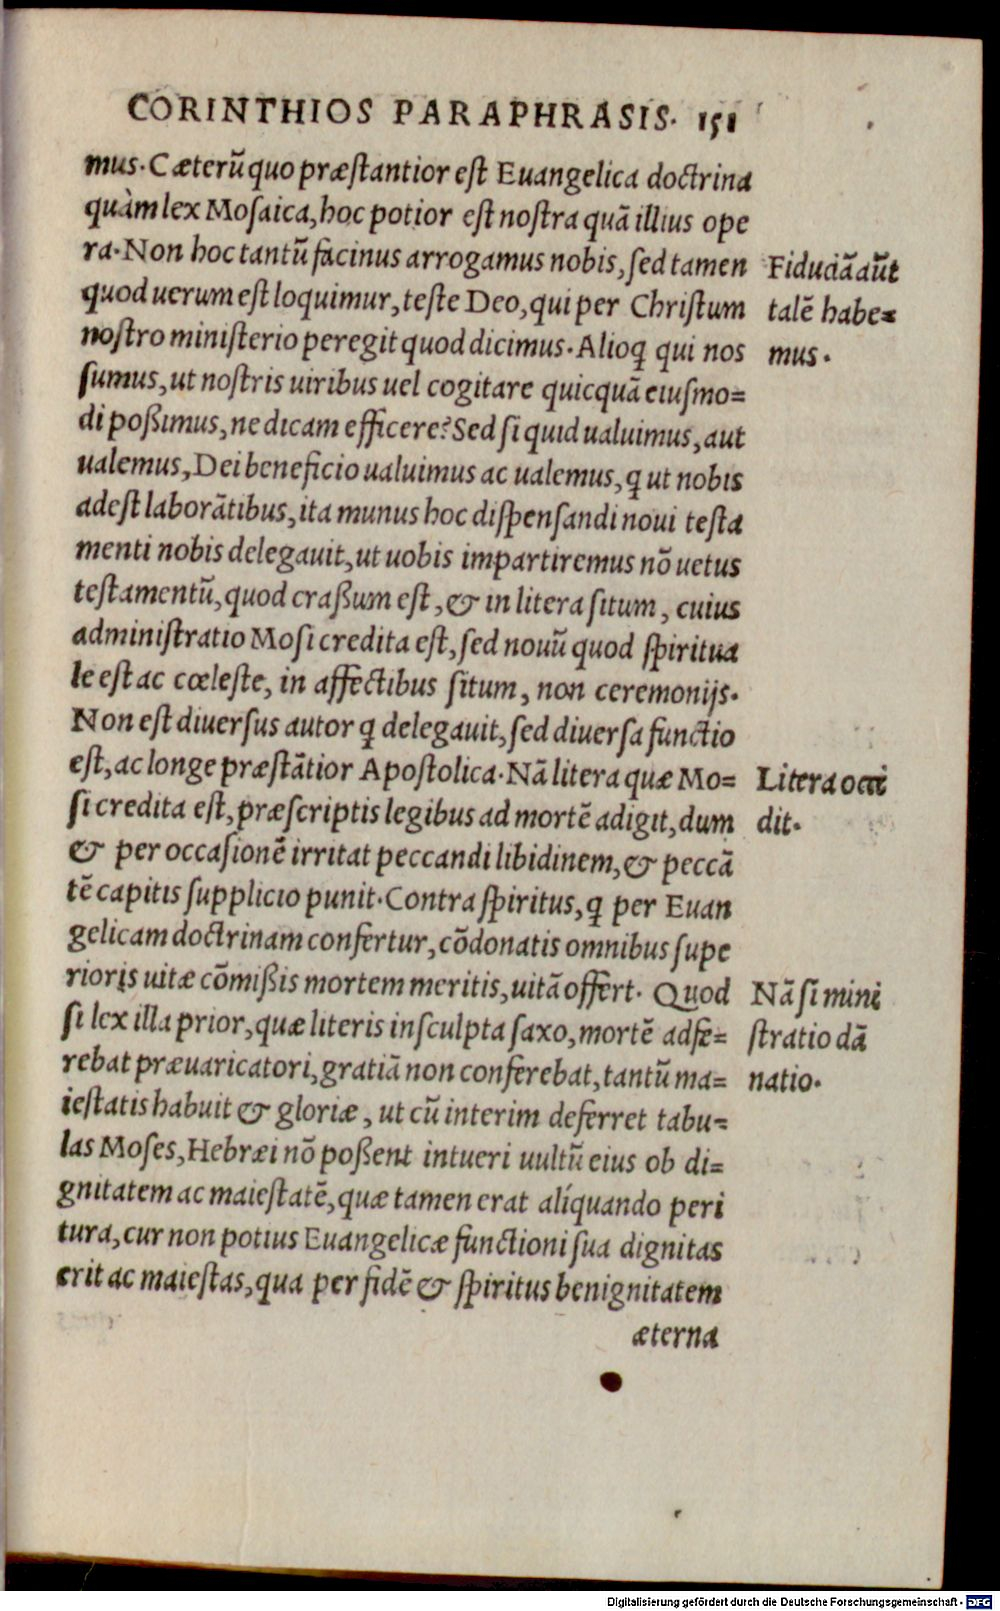 CORINTHIOS PARAPHRASIS. 151
mus. Cæterũ quo præstantior est Euangelica doctrina
quàm lex Mosaica, hoc potior est nostra quã illius ope
ra. Non hoc tantũ facinus arrogamus nobis, sed tamen
quod uerum est loquimur, teste Deo, qui per Christum
nostro ministerio peregit quod dicimus. Alioq̃ qui nos
sumus, ut nostris uiribus uel cogitare quicquã eiusmo=
di poßimus, ne dicam efficere? Sed si quid ualuimus, aut
ualemus, Dei beneficio ualuimus ac ualemus, q̃ ut nobis
adest laborãtibus, ita munus hoc dispensandi noui testa
menti nobis delegauit, ut uobis impartiremus nõ uetus
testamentũ, quod craßum est, & in litera situm, cuius
administratio Mosi credita est, sed nouũ quod spiritua
le est ac cœleste, in affectibus situm, non ceremonijs.
Non est diuersus autor q̃ delegauit, sed diuersa functio
est, ac longe præstãtior Apostolica. Nã litera quæ Mo=
si credita est, præscriptis legibus ad mortẽ adigit, dum
& per occasionẽ irritat peccandi libidinem, & peccã
tẽ capitis supplicio punit. Contra spiritus, q̃ per Euan
gelicam doctrinam confertur, cõdonatis omnibus supe
rioris uitæ cõmißis mortem meritis, uitã offert. Quod
si lex illa prior, quæ literis insculpta saxo, mortẽ adfe=
rebat præuaricatori, gratiã non conferebat, tantũ ma=
iestatis habuit & gloriæ, ut cũ interim deferret tabu=
las Moses, Hebræi nõ poßent intueri uultũ eius ob di=
gnitatem ac maiestatẽ, quæ tamen erat alíquando peri
tura, cur non potius Euangelicæ functioni sua dignitas
erit ac maiestas, qua per fidẽ & spiritus benignitatem
æterna
Fiduciã aũt
talẽ habe=
mus.
Litera occi
dit.
Nã si mini
stratio dã
natio.
Digitalisierung gefördert durch die Deutsche Forschungsgemeinschaft - DFG